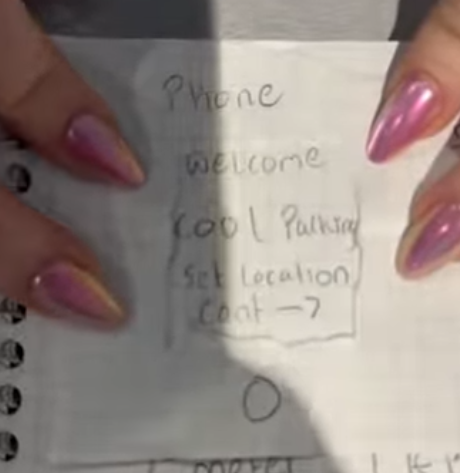 Phone
Welcome
Cool Parking
Set Location
Cont →